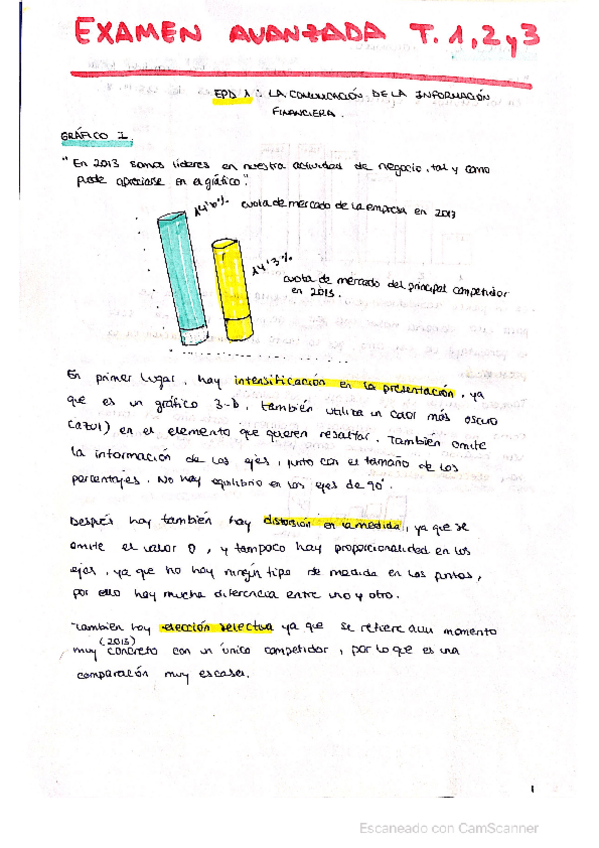 EXAMEN AVANZADA T. 1, 2 y 3
EPD 1 : LA COMUNICACIÓN DE LA INFORMACIÓN
FINANCIERA.
GRÁFICO 1.
"En 2013 somos líderes en nuestra actividad de negocio, tal y como
puede apreciarse en el gráfico".
14'6% cuota de mercado de la empresa en 2013
14'3%
cuota de mercado del principal competidor
en 2013.
En primer lugar, hay intensificación en la presentación, ya
que es un gráfico 3-D, también utiliza un color más oscuro
(azul) en el elemento que quieren resaltar. También omite
la información de los ejes, junto con el tamaño de los
porcentajes. No hay equilibrio en los ejes de 90°.
Después hay también hay distorsión en la medida, ya que se
omite el valor 0, y tampoco hay proporcionalidad en los
ejes, ya que no hay ningún tipo de medida en los puntos,
por ello hay mucha diferencia entre uno y otro.
También hay elección selectiva ya que se refiere a un momento
(2013)
muy concreto con un único competidor, por lo que es una
comparación muy escasa.
1
Escaneado con CamScanner